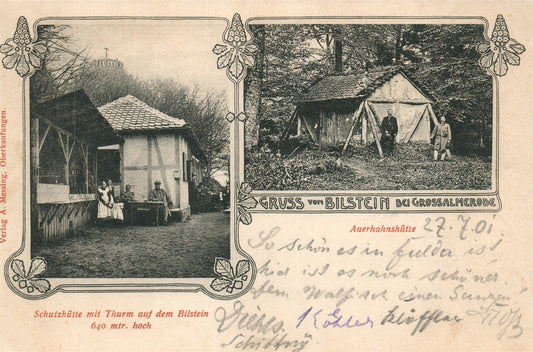 Verlag A. Messing, Oberkaufungen.
GRUSS VOM BILSTEIN BEI GROSSALMERODE
Auerhahnshütte
27.7.01
Schutzhütte mit Thurm auf dem Bilstein
640 mtr. hoch
So schön es in fulda ist
hier ist es noch schöner
dem Walfisch einen
Köhler